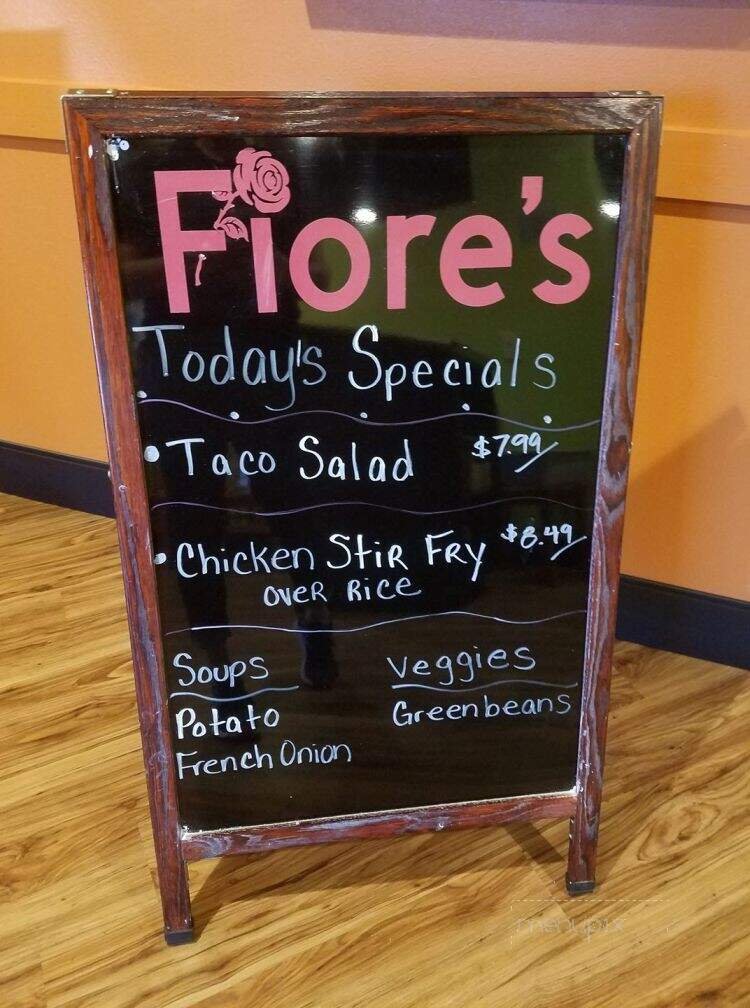 Fiore's
Today's Specials
• Taco Salad $7.99
• Chicken Stir Fry $8.49
over Rice
Soups Veggies
Potato Greenbeans
French Onion
menupix